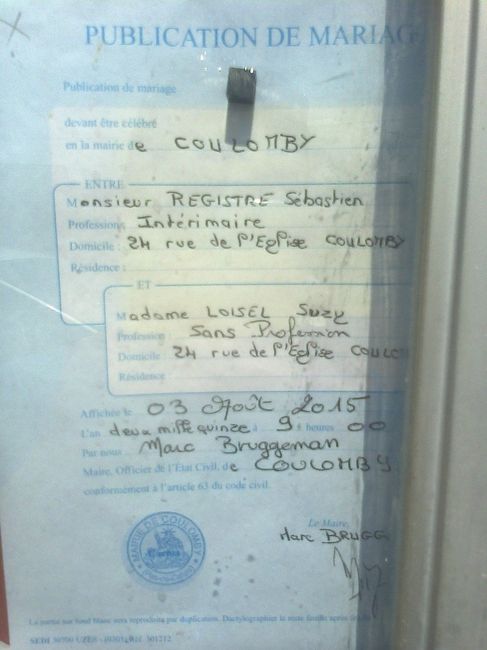 PUBLICATION DE MARIAG
Publication de mariage
devant être célébré
en la mairie de COULOMBY
ENTRE
Monsieur REGISTRE Sébastien
Profession: Intérimaire
Domicile: 24 rue de l'Eglise COULOMBY
Résidence:
ET
Madame LOISEL Suzy
Profession: Sans Profession
Domicile: 24 rue de l'Eglise COULOM
Résidence
Affichée le 03 Août 2015
L'an deux mille quinze à 9 heures 00
Par nous Marc Bruggeman
Maire, Officier de l'État Civil, de COULOMBY
conformément à l'article 63 du code civil.
Le Maire,
Marc BRUGG
MAIRIE DE COULOMBY
(Pas-de-Calais)
La partie sur fond blanc sera reproduite par duplication. Dactylographier le reste feuille après
SEDI 30700 UZES